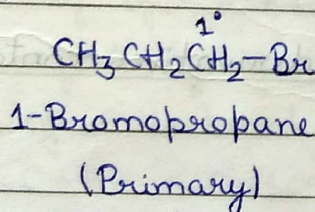 1°
CH3CH2CH2-Br
1-Bromopropane
(Primary)